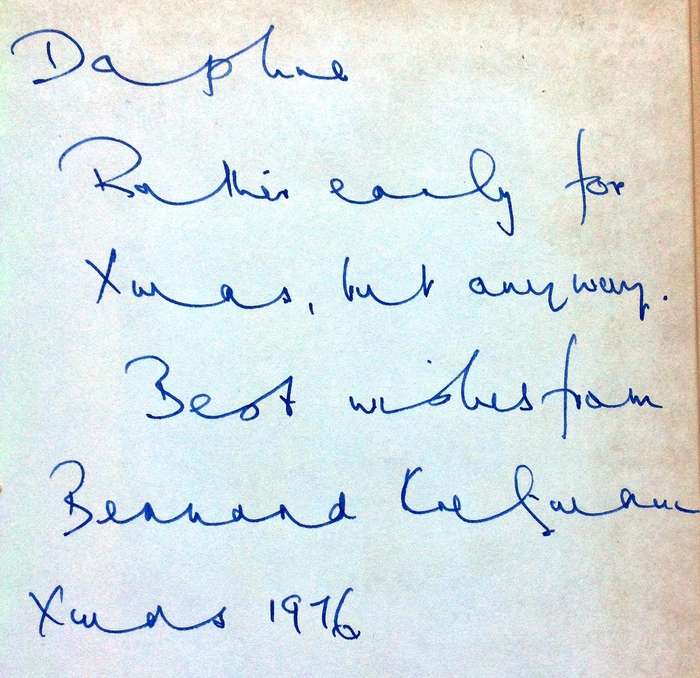 Daphne
Rather early for
Xmas, but anyway.
Best wishes from
Bernard
Xmas 1976